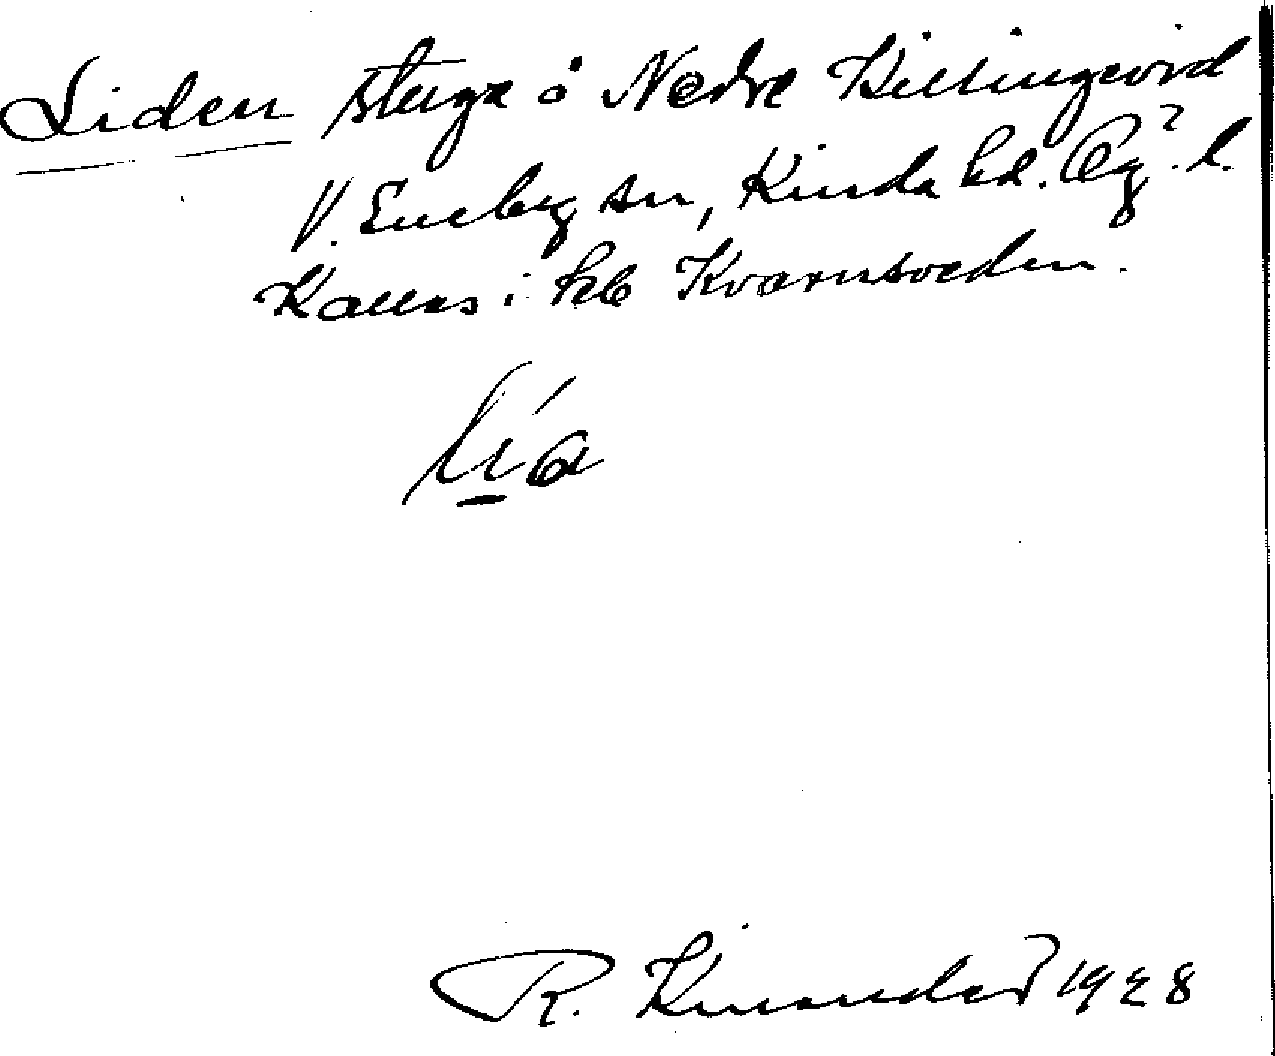 Liden stuga å Nedre Killingevid
V. Eneby sn, Kinda hd. Ög. l.
Kallas i kb Kvarnsveden.
lía
R. Kinander 1928